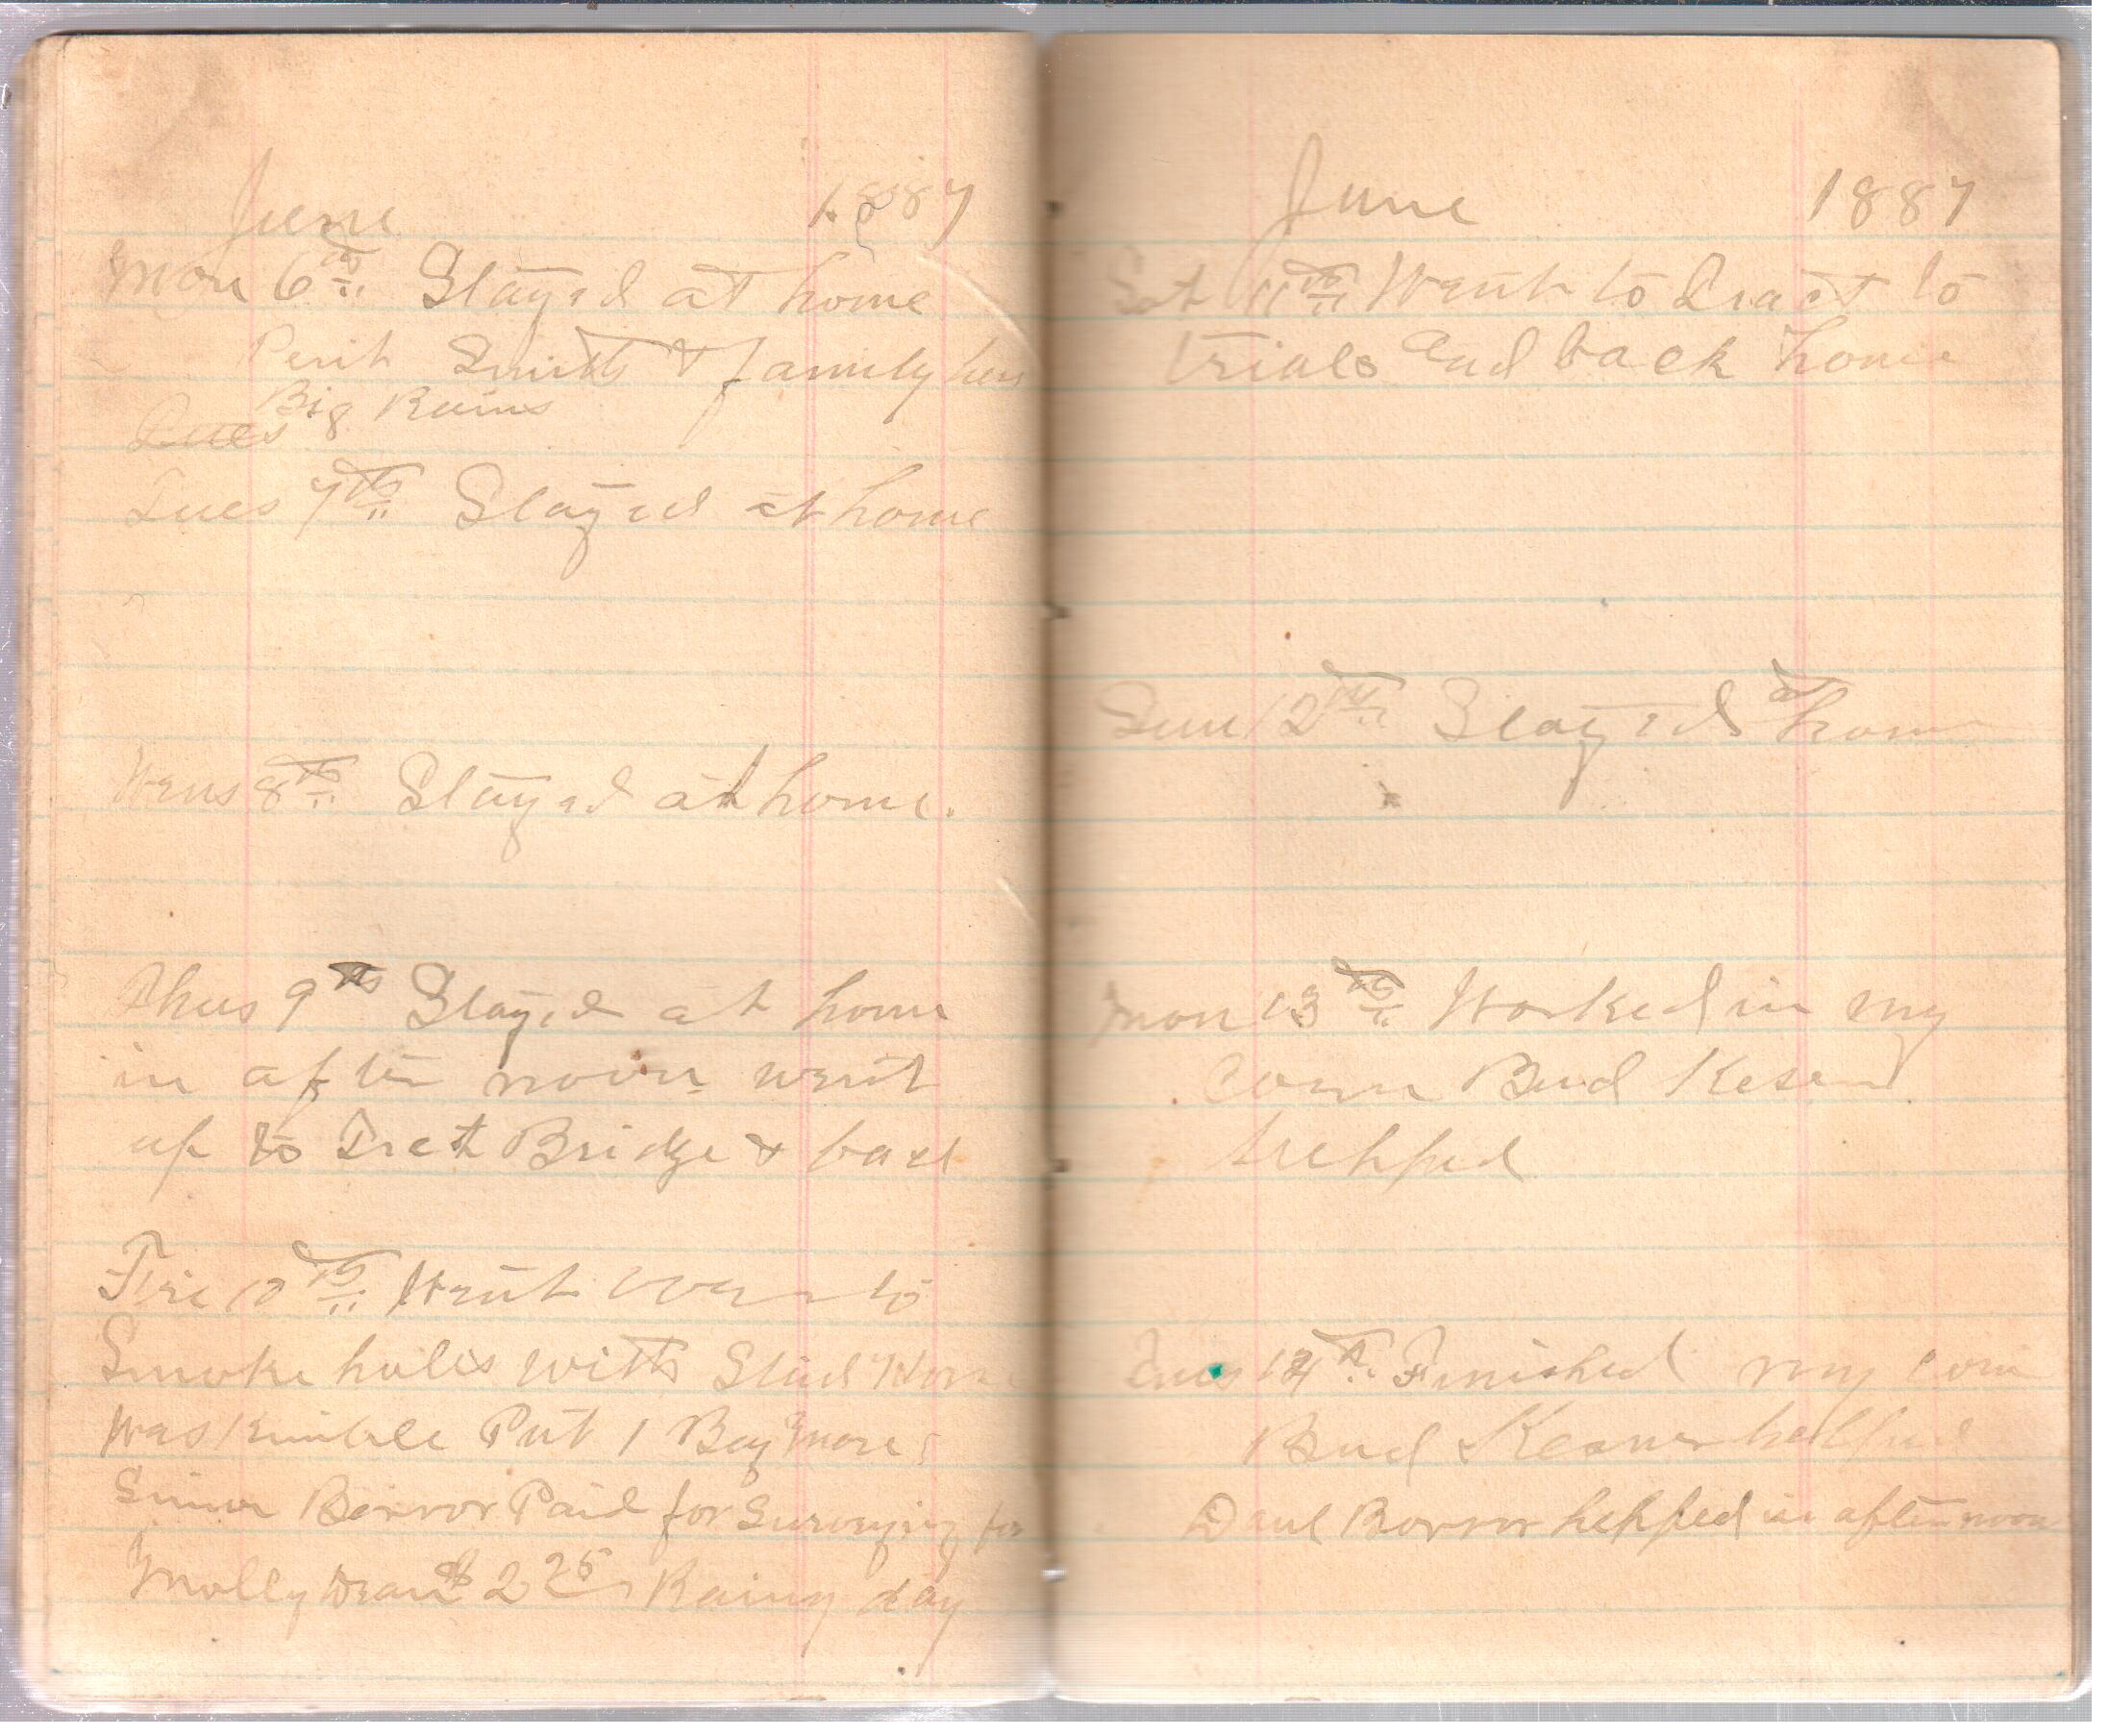 June 1887
Mon 6th Stayed at home
Smith & family here
Big Rains
Tues
Tues 7th Stayed at home
Wens 8th Stayed at home.
Thus 9th Stayed at home
in after noon went
up to Tract Bridge & back
Fri 10th Went over to
Smoke holes with
Was Kimble Put 1 Bay Mare
Simon Borror Paid for Surveying for
Molly Dean $2 25 Rainy day
June 1887
Sat 11th Went to Tract to
trials and back home
Sun 12th Stayed at home
Mon 13th Worked in my
Corn Bud Kesner
hehped
Tues 14th Finished my corn
Bud Kesner helped
Borror hehped in afternoon